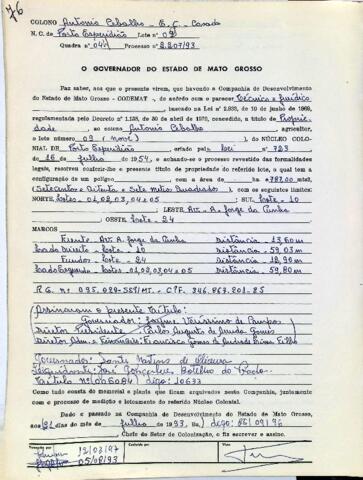 76
COLONO Antonio Ceballo - E. C. - Casado
N. C. de Porto Esperidião Lote nº 09
Quadra nº 04 Processo nº 2.207/93
O GOVERNADOR DO ESTADO DE MATO GROSSO
Faz saber, aos que o presente virem, que havendo a Companhia de Desenvolvimento
do Estado de Mato Grosso - CODEMAT, de acordo com o parecer Técnico e Jurídico
baseado na Lei de 19 de junho de 1969,
regulamentada pelo Decreto N.º 1.138, de 30 de abril de 1970, concedido, a título de Proprie
dade ao colono Antonio Ceballo, agricultor,
o lote número 09 (nove), do NÚCLEO COLO-
NIAL DE Porto Esperidião, criado pela Lei nº 723
de 16 de julho 1954, e achando-se o processo revestido das formalidades
legais, resolveu conferir-lhe o presente título de propriedade do referido lote, o qual tem a
configuração de um polígono com a área de 787,00 mts2
(Setecentos e Oitenta e Sete Metros Quadrados) com os seguintes limites:
NORTE: Lotes - 01, 02, 03, 04 e 05 SUL: Lote - 10
LESTE: Av. - A. Jorge da Cunha
OESTE: Lote - 24
MARCOS
Frente - Av. A. Jorge da Cunha Distância - 13,60 m
Lado Direito - Lote - 10 Distância - 59,03 m
Fundos - Lote - 24 Distância - 12,90 m
Lado Esquerdo - Lotes - 01, 02, 03, 04 e 05 Distância - 59,80 m
R.G. nº 095.029-SSP/MT. - CPF.
Assinaram o presente Título:
Governador: Jayme Veríssimo de Campos
Diretor Presidente: Carlos Augusto de Arruda Gomes
Governador: Dante Martins de Oliveira
Liquidante: José Gonçalves Botelho do Prado
Título nº 006084 / digo: 10633
Como tudo consta do memorial e planta que ficam arquivados nesta Companhia, juntamente
com o processo de medição e loteamento do referido Núcleo Colonial.
Dado e passado na Companhia de Desenvolvimento do Estado de Mato Grosso,
aos 21 dias do mês de julho de 1993. Eu) digo: 05/09/96
Chefe do Setor de Colonização, o fiz escrever e assino.
Conferido por
Visto
05/08/93